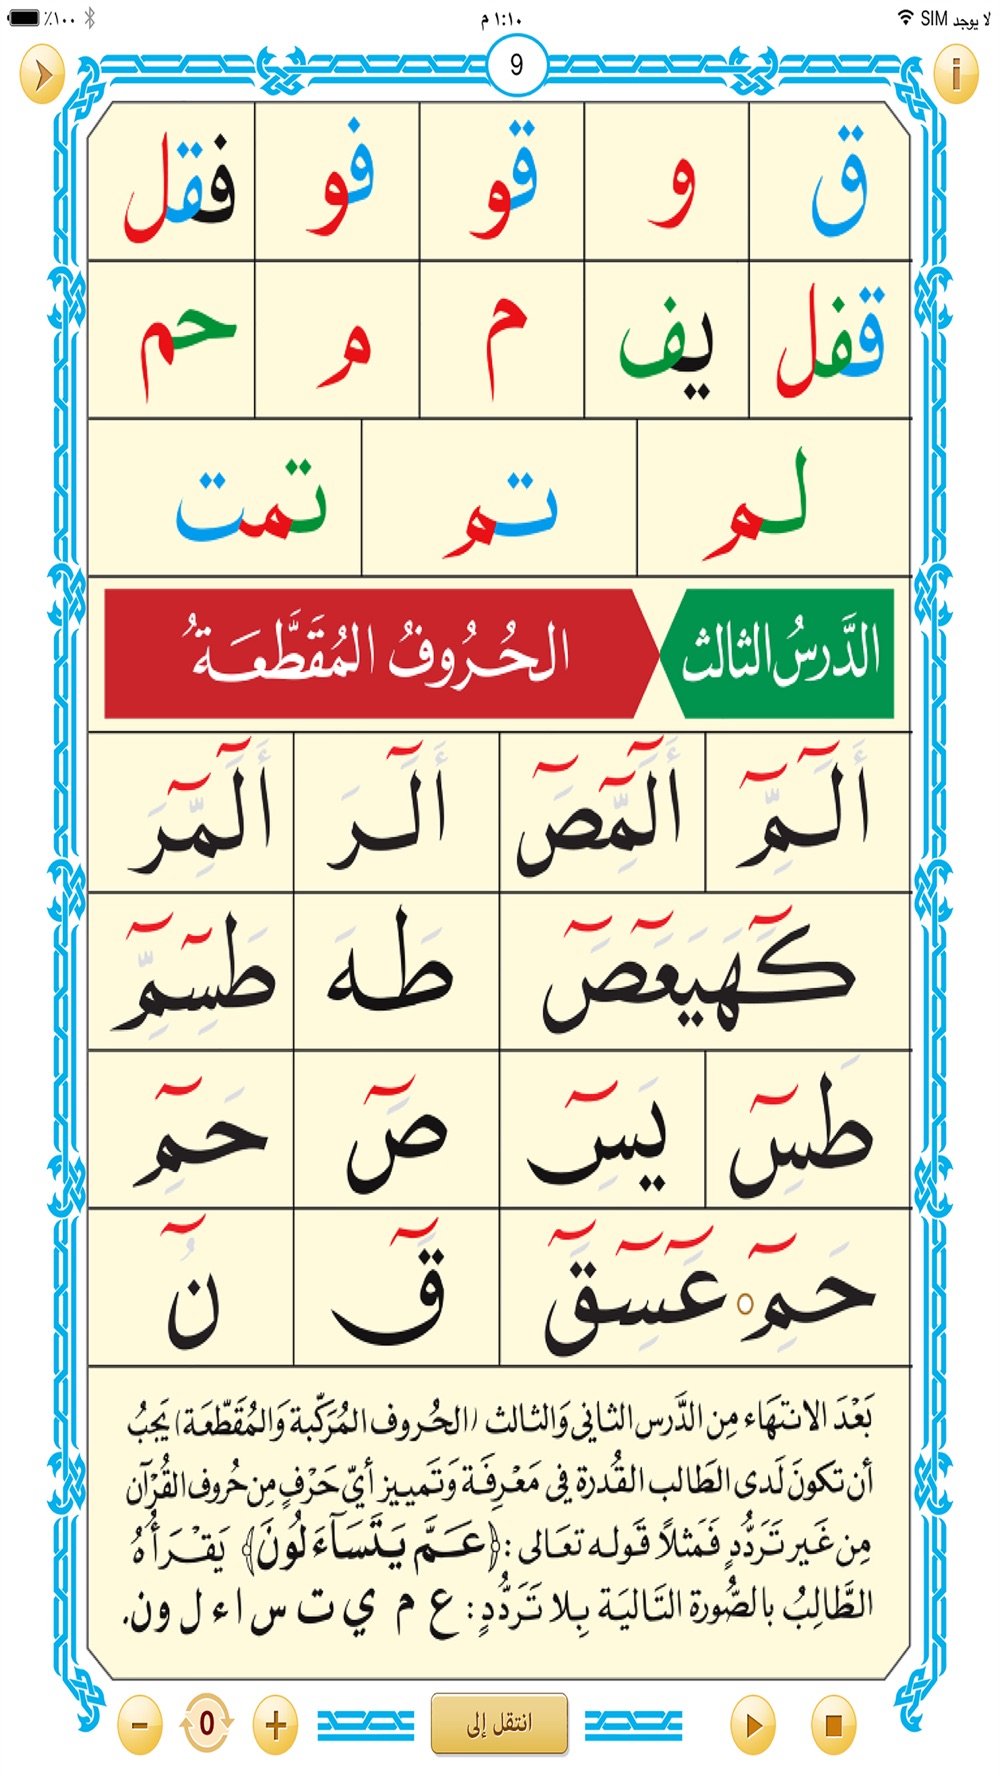 لا يوجد SIM ١:١٠ م ٪١٠٠
9
ق و قو فو فقل
قفل يف م م حم
لم تم تمت
الدَّرسُ الثالث الحُرُوفُ المُقَطَّعَةُ
أَلَٓمِّٓ أَلَٓمِّٓصَٓ أَلَٓرَ أَلَٓمِّٓرَ
كَٓهَيَعَٓصَٓ طَهَ طَسِٓمِّٓ
طَسِٓ يَسِٓ صَٓ حَمِٓ
حَمِٓ عَٓسِٓقَٓ قَٓ نُٓ
بَعْدَ الانتهَاء مِن الدَّرس الثاني وَالثالث (الحُروف المُرَكّبة وَالمُقَطّعَة) يَجبُ
أن تكونَ لَدى الطَالب القُدرة في مَعْرِفَة وَتَمييز أيّ حَرْفٍ مِن حُروف القُرْآن
مِن غَير تَرَدُّدٍ فَمَثلاً قَوله تعَالى : ﴿عَمَّ يَتَسَآءَلُونَ﴾ يَقْرَأُهُ
الطَّالِبُ بالصُّورة التَاليَة بِلا تَرَدُّدٍ : ع م ي ت س ا ء ل و ن.
− 0 + انتقل إلى